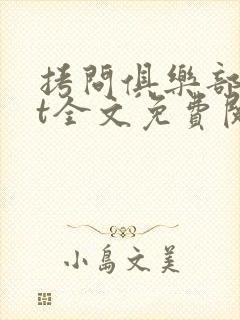 拷問俱樂部
t全文免費閱
小島文美